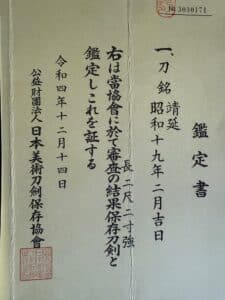 № 3030171
鑑定書
一、刀 銘 靖延
昭和十九年二月吉日
長二尺二寸強
右は當協會に於て審査の結果保存刀剣と
鑑定しこれを証する
令和四年十二月十四日
公益財團法人 日本美術刀剣保存協會